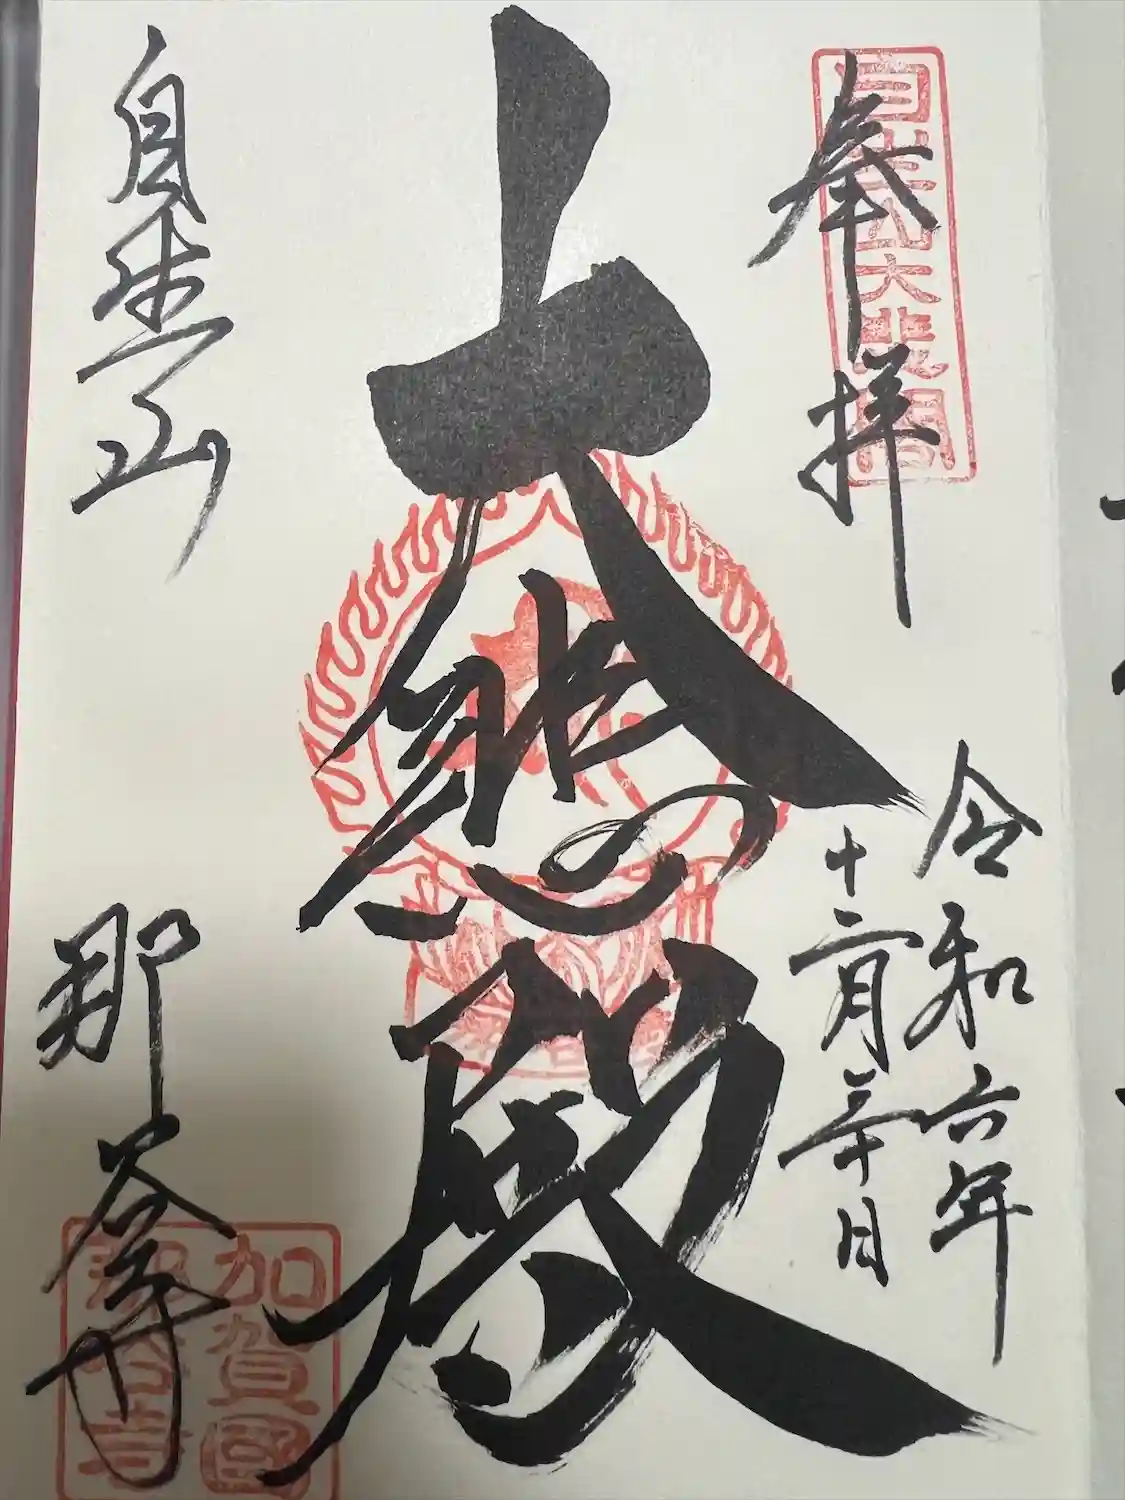 奉拝
自生山大悲閣
令和六年
十二月三十日
大悲殿
自生山
那谷寺
加賀國
那谷寺